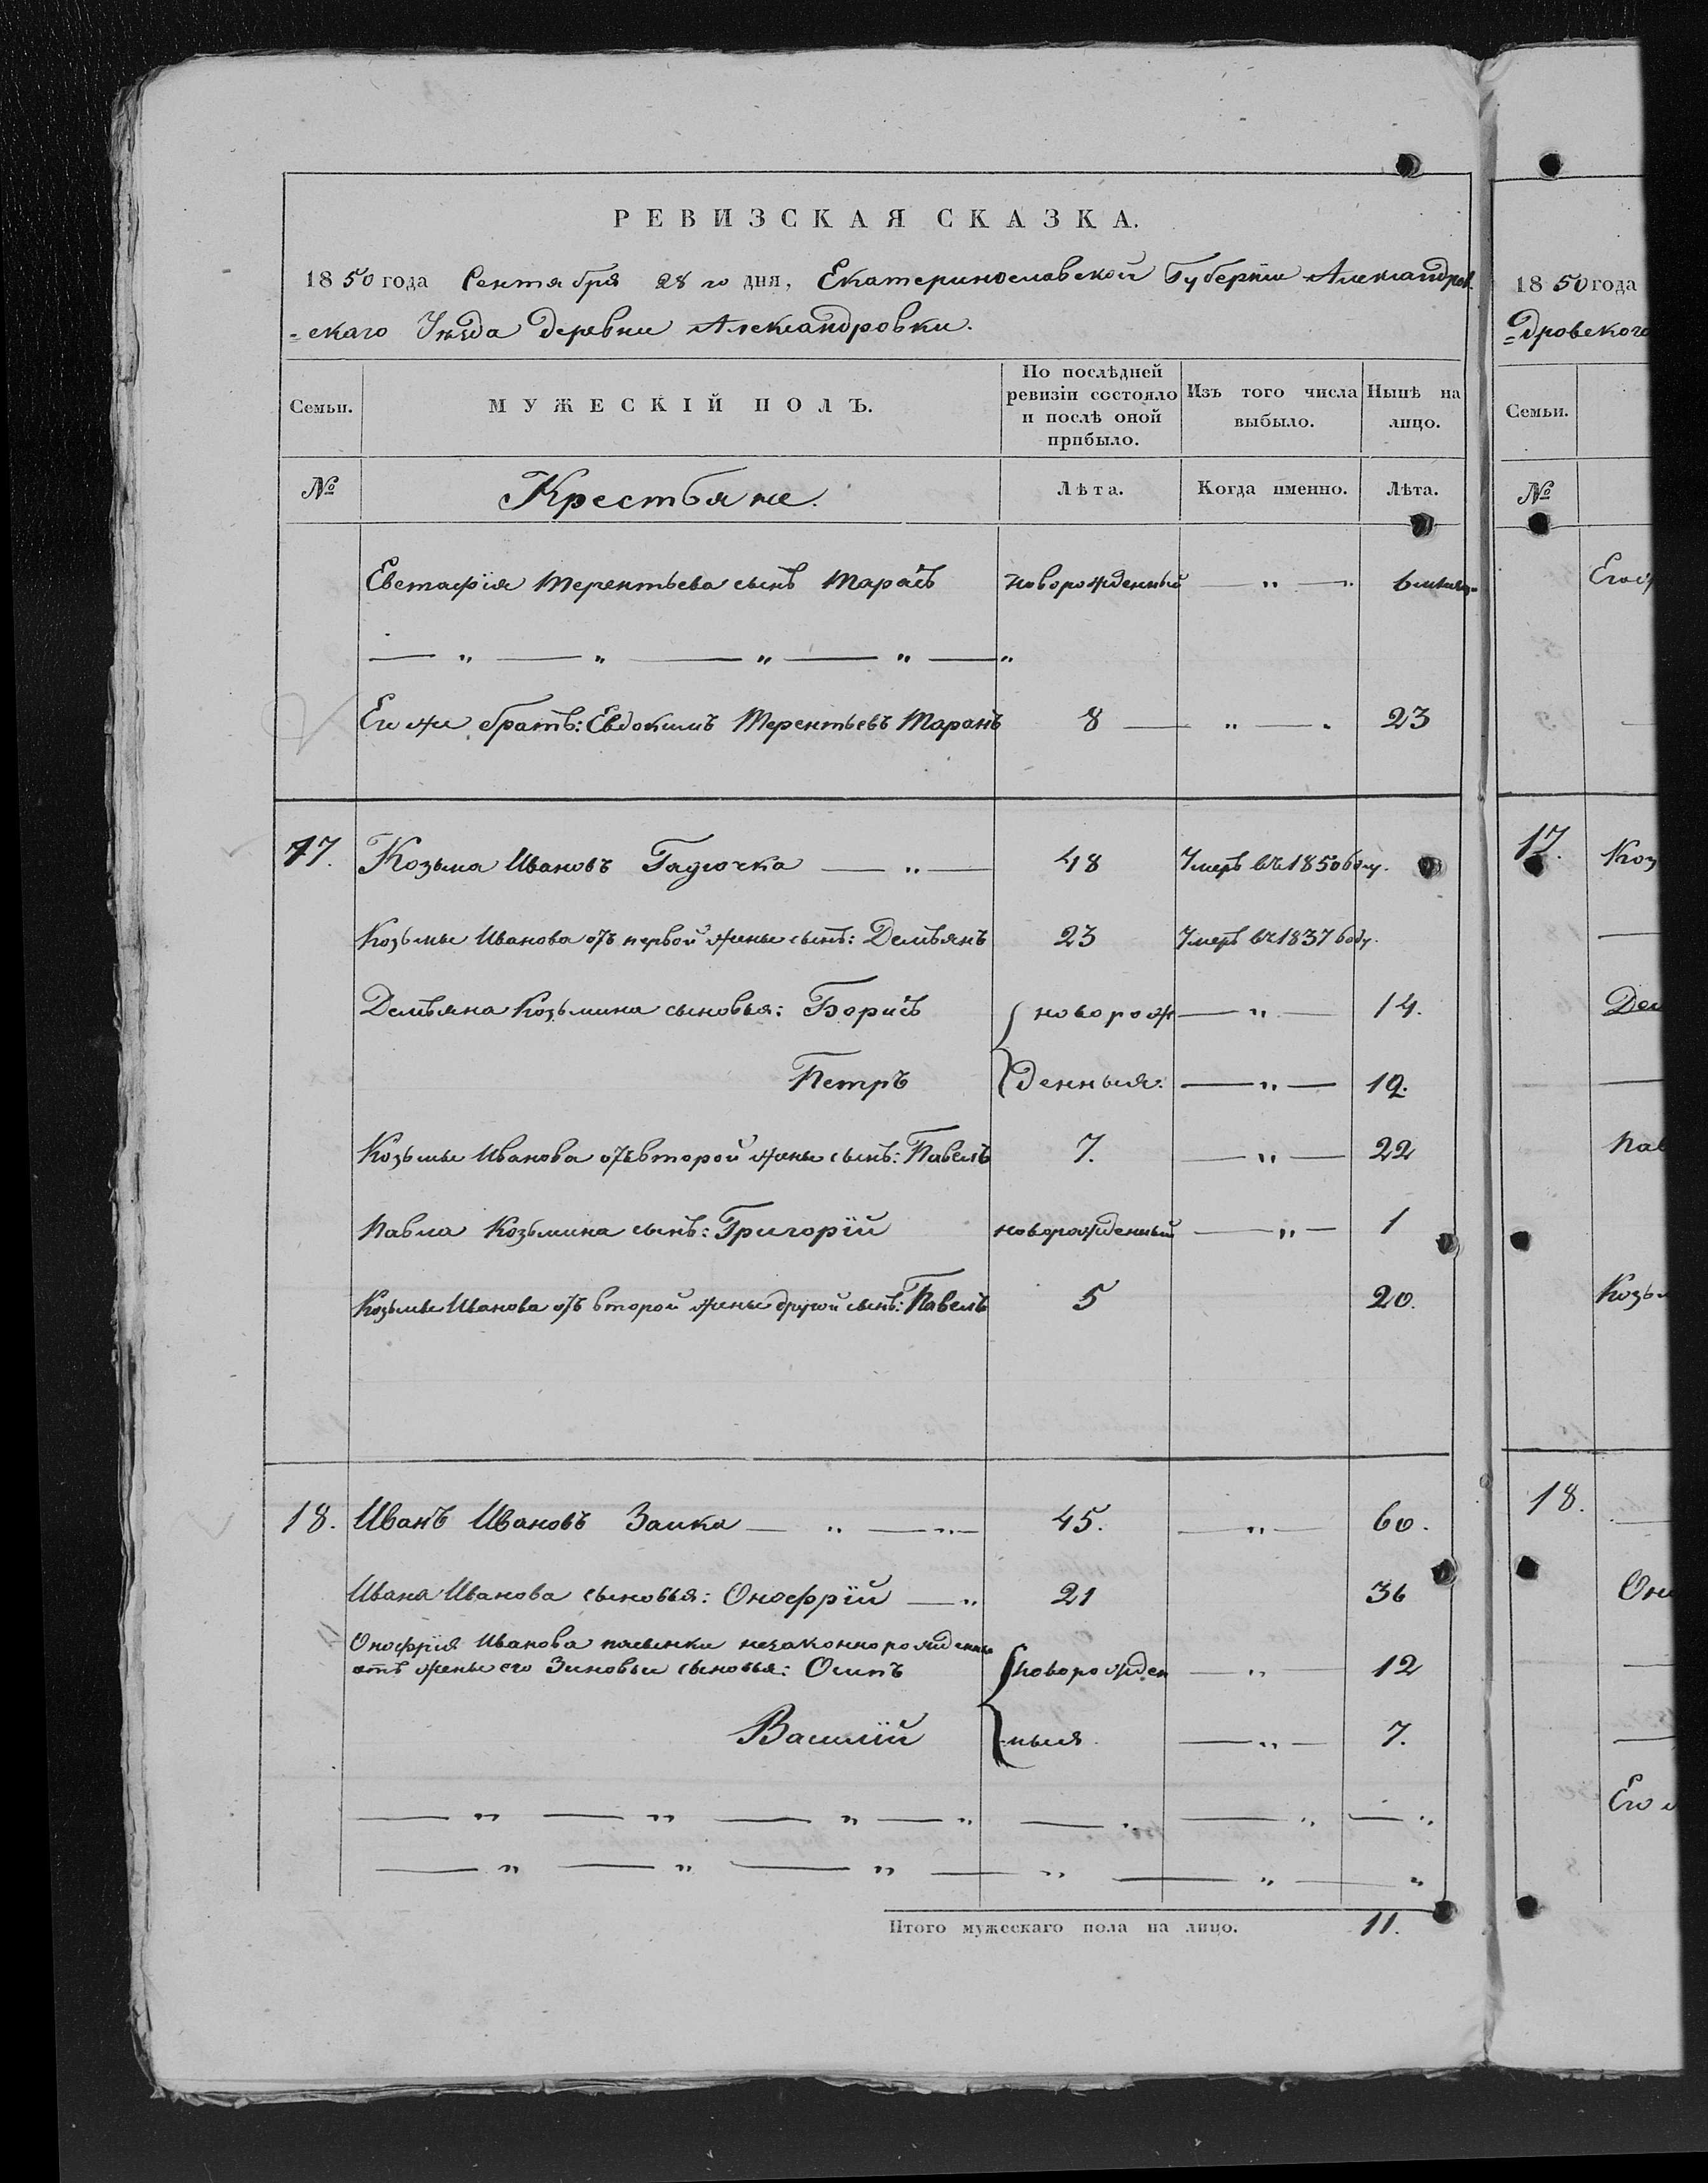 РЕВИЗСКАЯ СКАЗКА.
1850 года Сентября 28 го дня, Екатеринославской Губерніи Александров
=скаго Уѣзда деревни Александровки.
Семьи. МУЖЕСКІЙ ПОЛЪ. По послѣдней ревизіи состояло и послѣ оной прибыло. Изъ того числа выбыло. Нынѣ на лицо.
№ Крестьяне. Лѣта. Когда именно. Лѣта.
Евстафія Терентьева сынъ Тарасъ новорожденный — " — "
— " — " — " — " — "
Его же братъ: Евдокимъ Терентьевъ Таранъ 8 — " — 23
17. Козьма Ивановъ Гадючка — " — 48 Умеръ въ 1850 году.
Козьмы Иванова отъ первой жены сынъ: Демьянъ 23 Умеръ въ 1837 году.
Демьяна Козьмина сыновья: Борисъ новорож — " — 14.
Петръ денныя: — " — 12.
Козьмы Иванова отъ второй жены сынъ: Павелъ 7. — " — 22
Павла Козьмина сынъ: Григорій новорожденный — " — 1
Козьмы Иванова отъ второй жены другой сынъ: Павелъ 5 20.
18. Иванъ Ивановъ Заика — " — " — 45. — " — 60.
Ивана Иванова сыновья: Онофрій — " 21 36
Онофрія Иванова пасынки незаконнорожденны
отъ жены его Зиновьи сыновья: Осипъ новорожден — " — 12
Василій ныя — " — 7.
— " — " — " — " — " — " — "
— " — " — " — " — " — "
Итого мужескаго пола на лицо. 11.
1850 года
=дровского
Семьи.
№
17. Коз
Дем
Пав
Козьм
18.
Оно